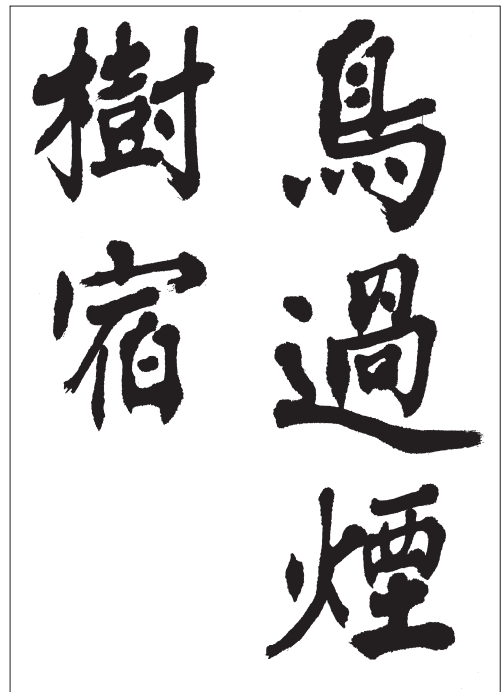 鳥過煙
樹宿